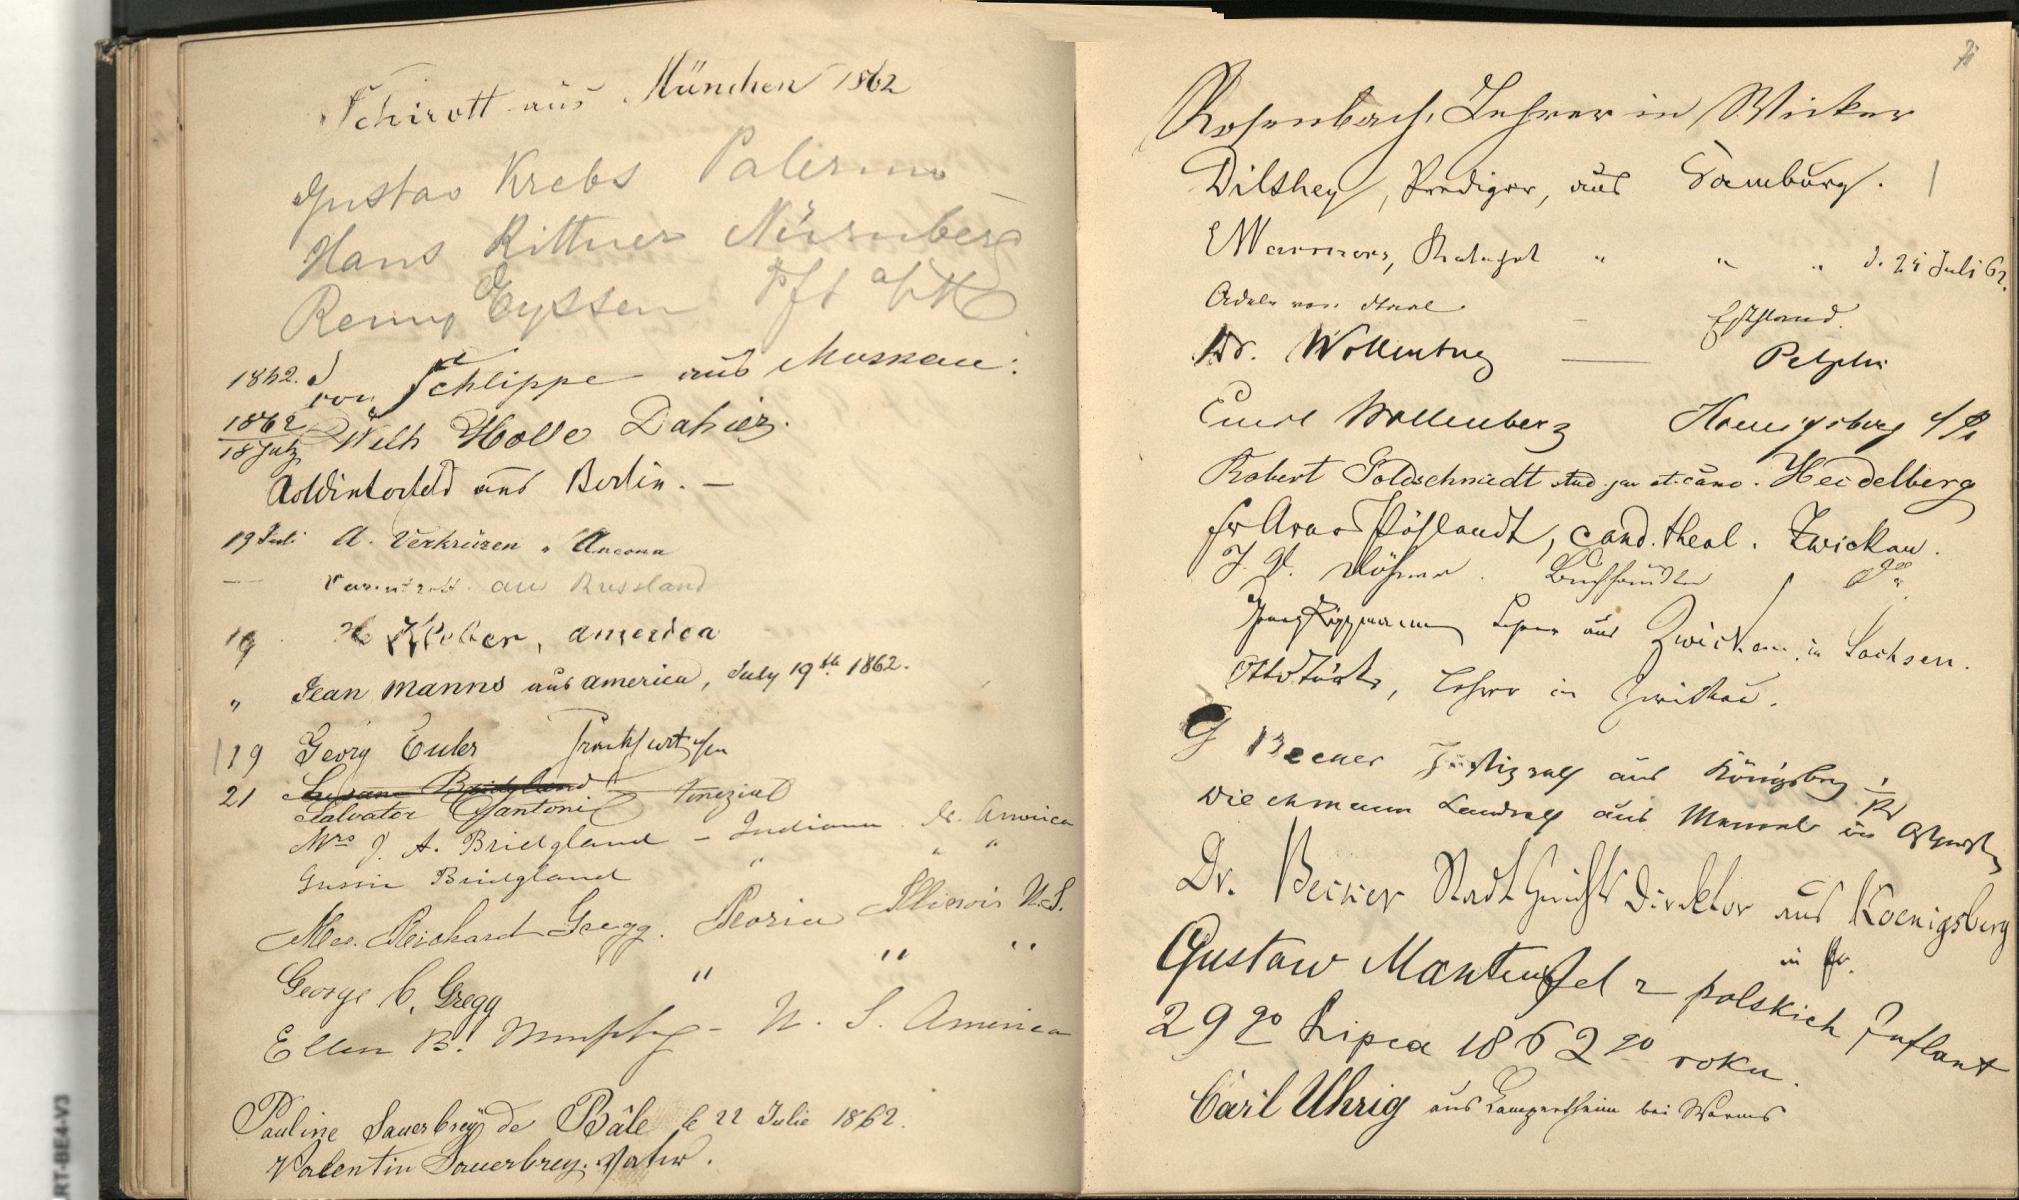 Schirott aus München 1862
Gustav Krebs Palermo
Hans Rittner Nürnberg
Eyssen
1862. von Schlippe aus Moskau.
1862 18 July Wilh Holle
aus Berlin. —
19 Juli A. Verkrüzen " Ancona
— aus Russland
19 H Kleber, america
" Jean Manns aus america, July 19th 1862.
19 Georg Euler Frankfurt a/m
21 Susana Bridgland
Salvator Santoni
Mrs J. A. Bridgland – Indiana N. America
Gussie Bridgland " " "
Mrs. Richard Gregg. Peoria Illinois U.S.
George C. Gregg " " "
Ellen B. Murphy – U. S. America
Pauline Sauerbrey de Bâle le 22 Julie 1862.
Valentin Sauerbrey. Vater.
Rosenbach, Lehrer in Wicker
Dilthey, Prediger, aus Hamburg.
" " " d. 25 Juli 62.
Adele von Esthland.
Dr. Wollenberg — Pelplin
Emil Wollenberg Koenigsberg i/Pr
Robert Goldschmidt stud. jur et. cam. Heidelberg
Pöhlandt, cand. theol. Zwickau.
J. Döhner. Buchhändler
Lehrer aus Zwickau in Sachsen.
Otto Türke, Lehrer in Zwickau.
G Becker Justizrath aus Königsberg i/Pr
Wiechmann Landrath aus Memel in Ostpreußen
Dr. Becker Stadt Gerichts Direktor aus Koenigsberg
in Pr.
Gustaw Manteuffel z polskich Inflant
29go Lipca 1862go roku.
Carl Uhrig aus Lampertheim bei Worms